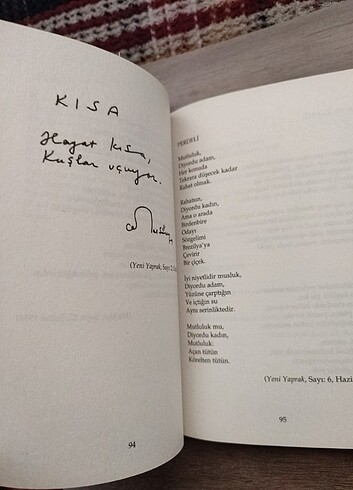 KISA
Hayat kısa,
Kuşlar uçuyor.
(Yeni Yaprak, Sayı: 2,
94
PERDELİ
Mutluluk,
Diyordu adam,
Her konuda
Tekrara düşecek kadar
Rahat olmak.
Rahatsın,
Diyordu kadın,
Ama o arada
Birdenbire
Odayı
Sözgelimi
Brezilya'ya
Çevirir
Bir çiçek.
İyi niyetlidir musluk,
Diyordu adam,
Yüzüne çarptığın
Ve içtiğin su
Aynı serinliktedir.
Mutluluk mu,
Diyordu kadın,
Mutluluk:
Açan tütün
Körelten tütün.
(Yeni Yaprak, Sayı: 6, Hazi
95